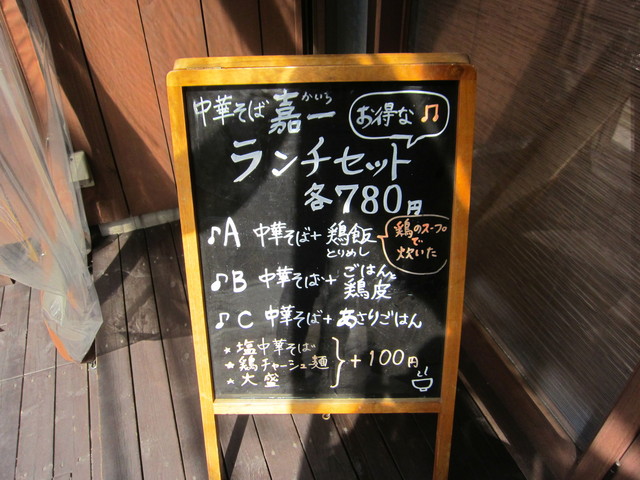 中華そば 嘉一 お得な♫
かいち
ランチセット
各780円
♪A 中華そば+鶏飯
とりめし
鶏のスープ
で
炊いた
♪B 中華そば+ごはんと
鶏皮
♪C 中華そば+あさりごはん
★塩中華そば
★鶏チャーシュー麺 } +100円
★大盛